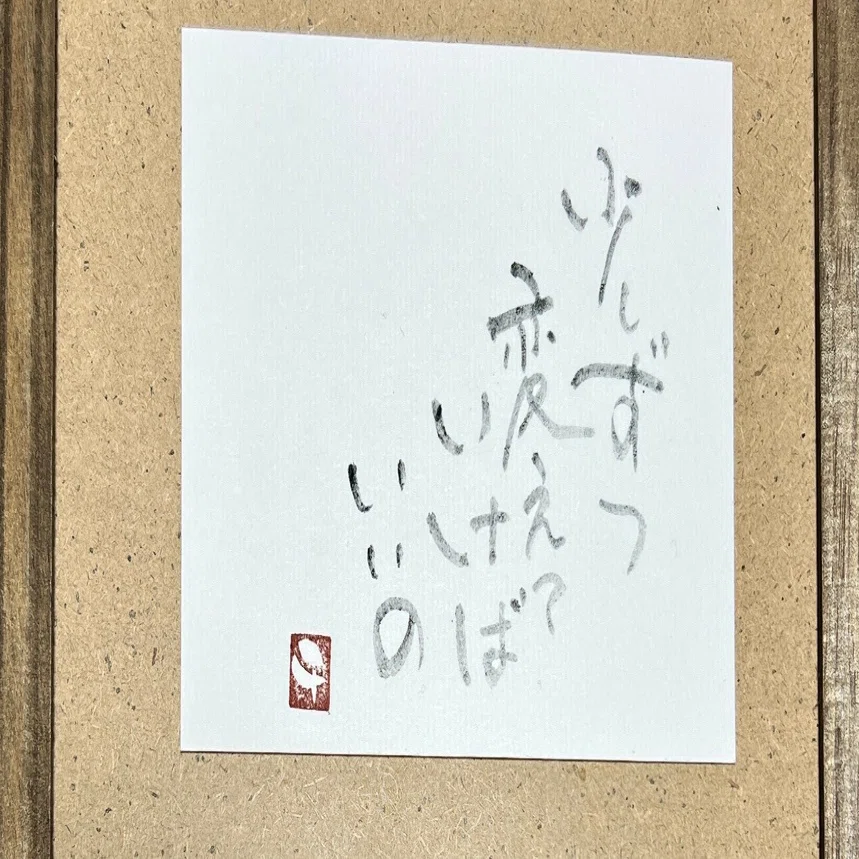 少しずつ
変えて
いけば
いいの